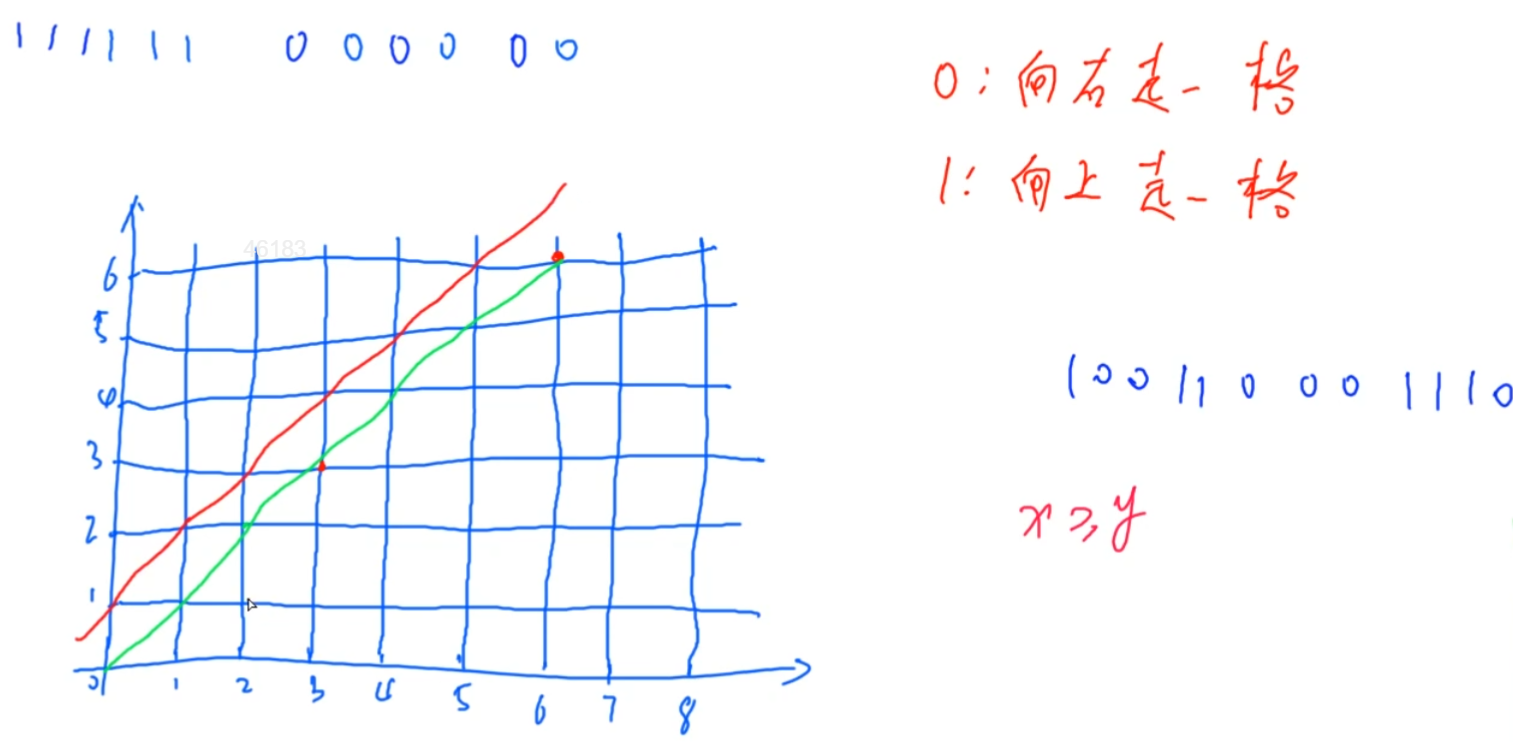 1 1 1 1 1 1 0 0 0 0 0 0
0：向右走一格
1：向上走一格
46183
6
5
4
3
2
1
0 1 2 3 4 5 6 7 8
1 0 0 1 1 0 0 0 1 1 1 0
x ≥ y